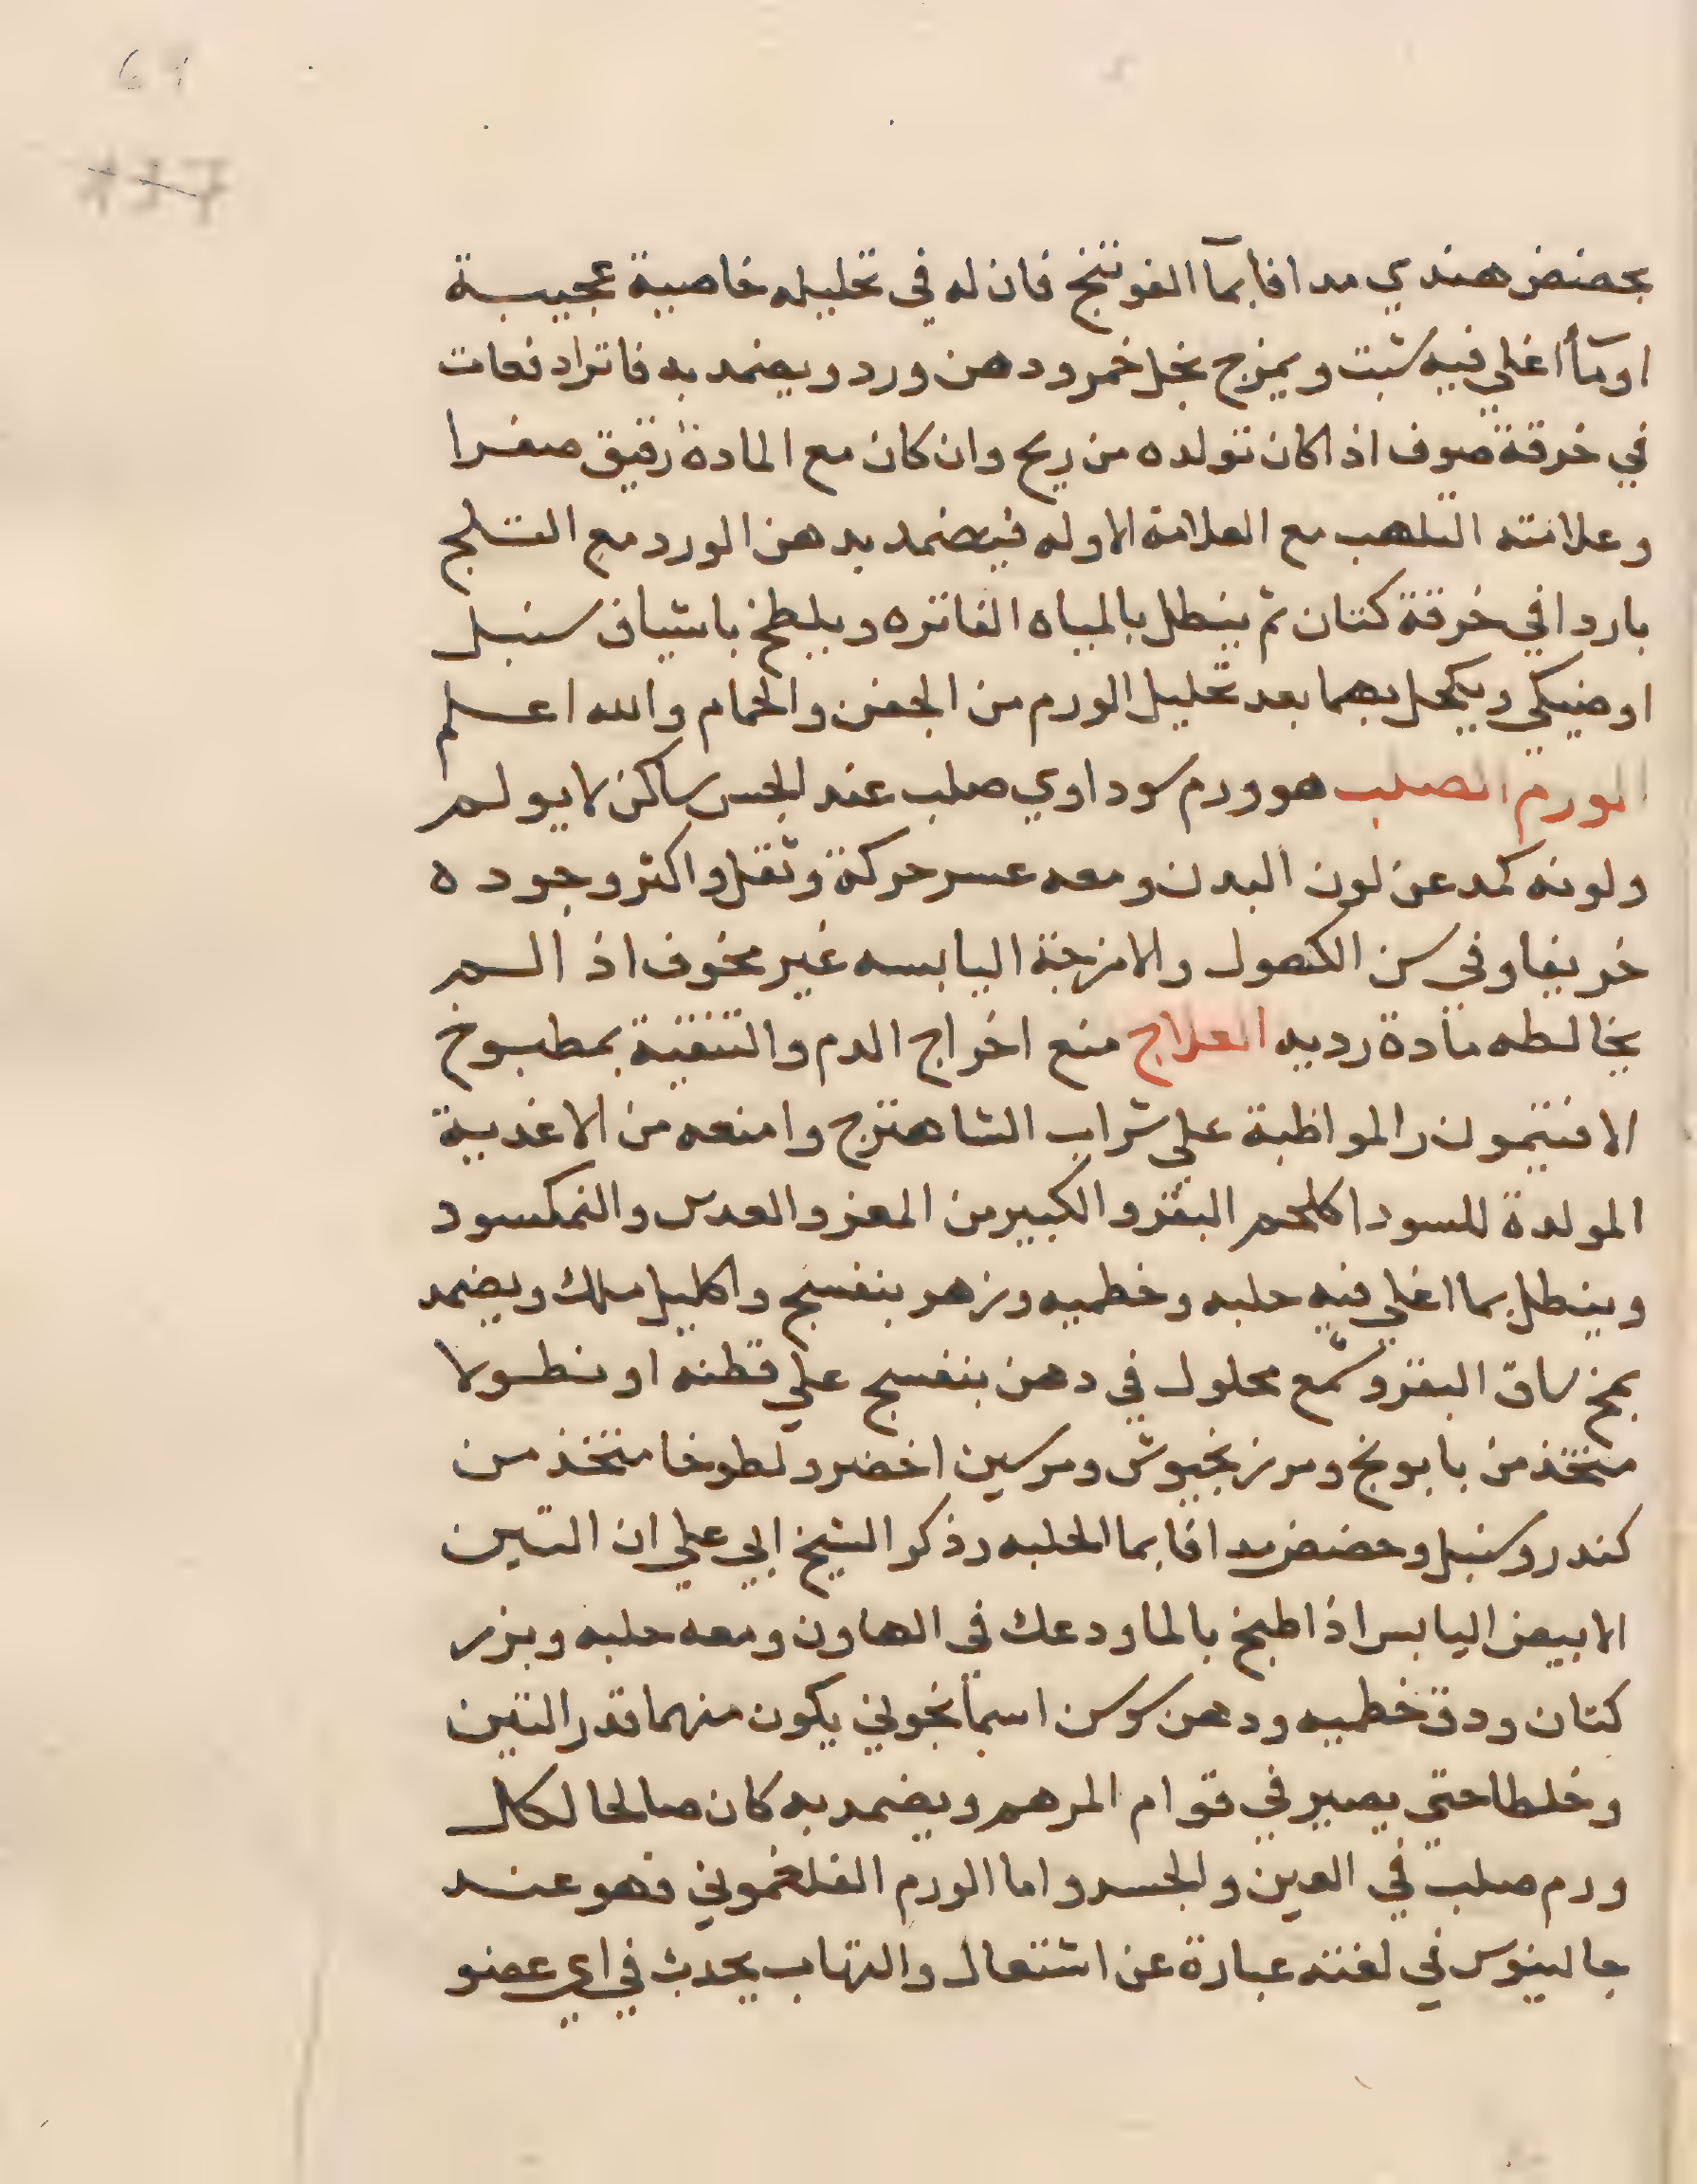 بحضض هندي مدافا بمآ الفوتنج فان له في تحليله خاصية عجيبة
اومآأ اغلي فيه شبت ويمزج بخل خمر ودهن ورد ويضمد به فاترا دفعات
في خرقة صوف اذا كان تولده من ريح وان كان مع المادة رقيق صفرا
وعلامته التلهب مع العلامة الاوله فيضمد بدهن الورد مع الثلج
باردا في خرقة كتان ثم ينطل بالمياه الفاتره ويلطخ باشياف سنبل
او ويكحل بهما بعد تحليل الورم من الجفن والحمام والله اعلم
الورم الصلب هو ورم سوداوي صلب عند الجس ساكن لا يولم
ولونه كمد عن لون البدن ومعه عسر حركة وثقل واكثر وجوده
خريفا وفي سن الكهول والامزجة اليابسه غير مخوف اذ الم
يخالطه مادة رديه العلاج منع اخراج الدم والتنقية بمطبوخ
الافتيمون والمواظبة علي شراب الشاهترج وامنعه من الاغدية
المولدة للسودا كلحم البقر والكبير من المعز والعدس والنمكسود
وينطل بما اغلي فيه حلبه وخطميه وزهر بنفسج واكليل ملك ويضمد
بمخ ساق البقر وشمع محلول في دهن بنفسج علي قطنه او نطولا
متخذ من بابونج ومرزنجوش ومرسين اخضر ولطوخا متخذ من
كندر وسنبل وحضض مدافا بما الحلبه وذكر الشيخ ابي علي ان التين
الابيض اليابس اذا طبخ بالما ودعك في الهاون ومعه حلبه وبزر
كتان ودق خطميه ودهن سوسن اسمانجوني يكون منهما قدر التين
وخلطا حتي يصير في قوام المرهم ويضمد به كان صالحا لكل
ورم صلب في العين والجسد واما الورم الفلغموني فهو عند
جالينوس في لغته عبارة عن اشتعال والتهاب يحدث في اي عضو